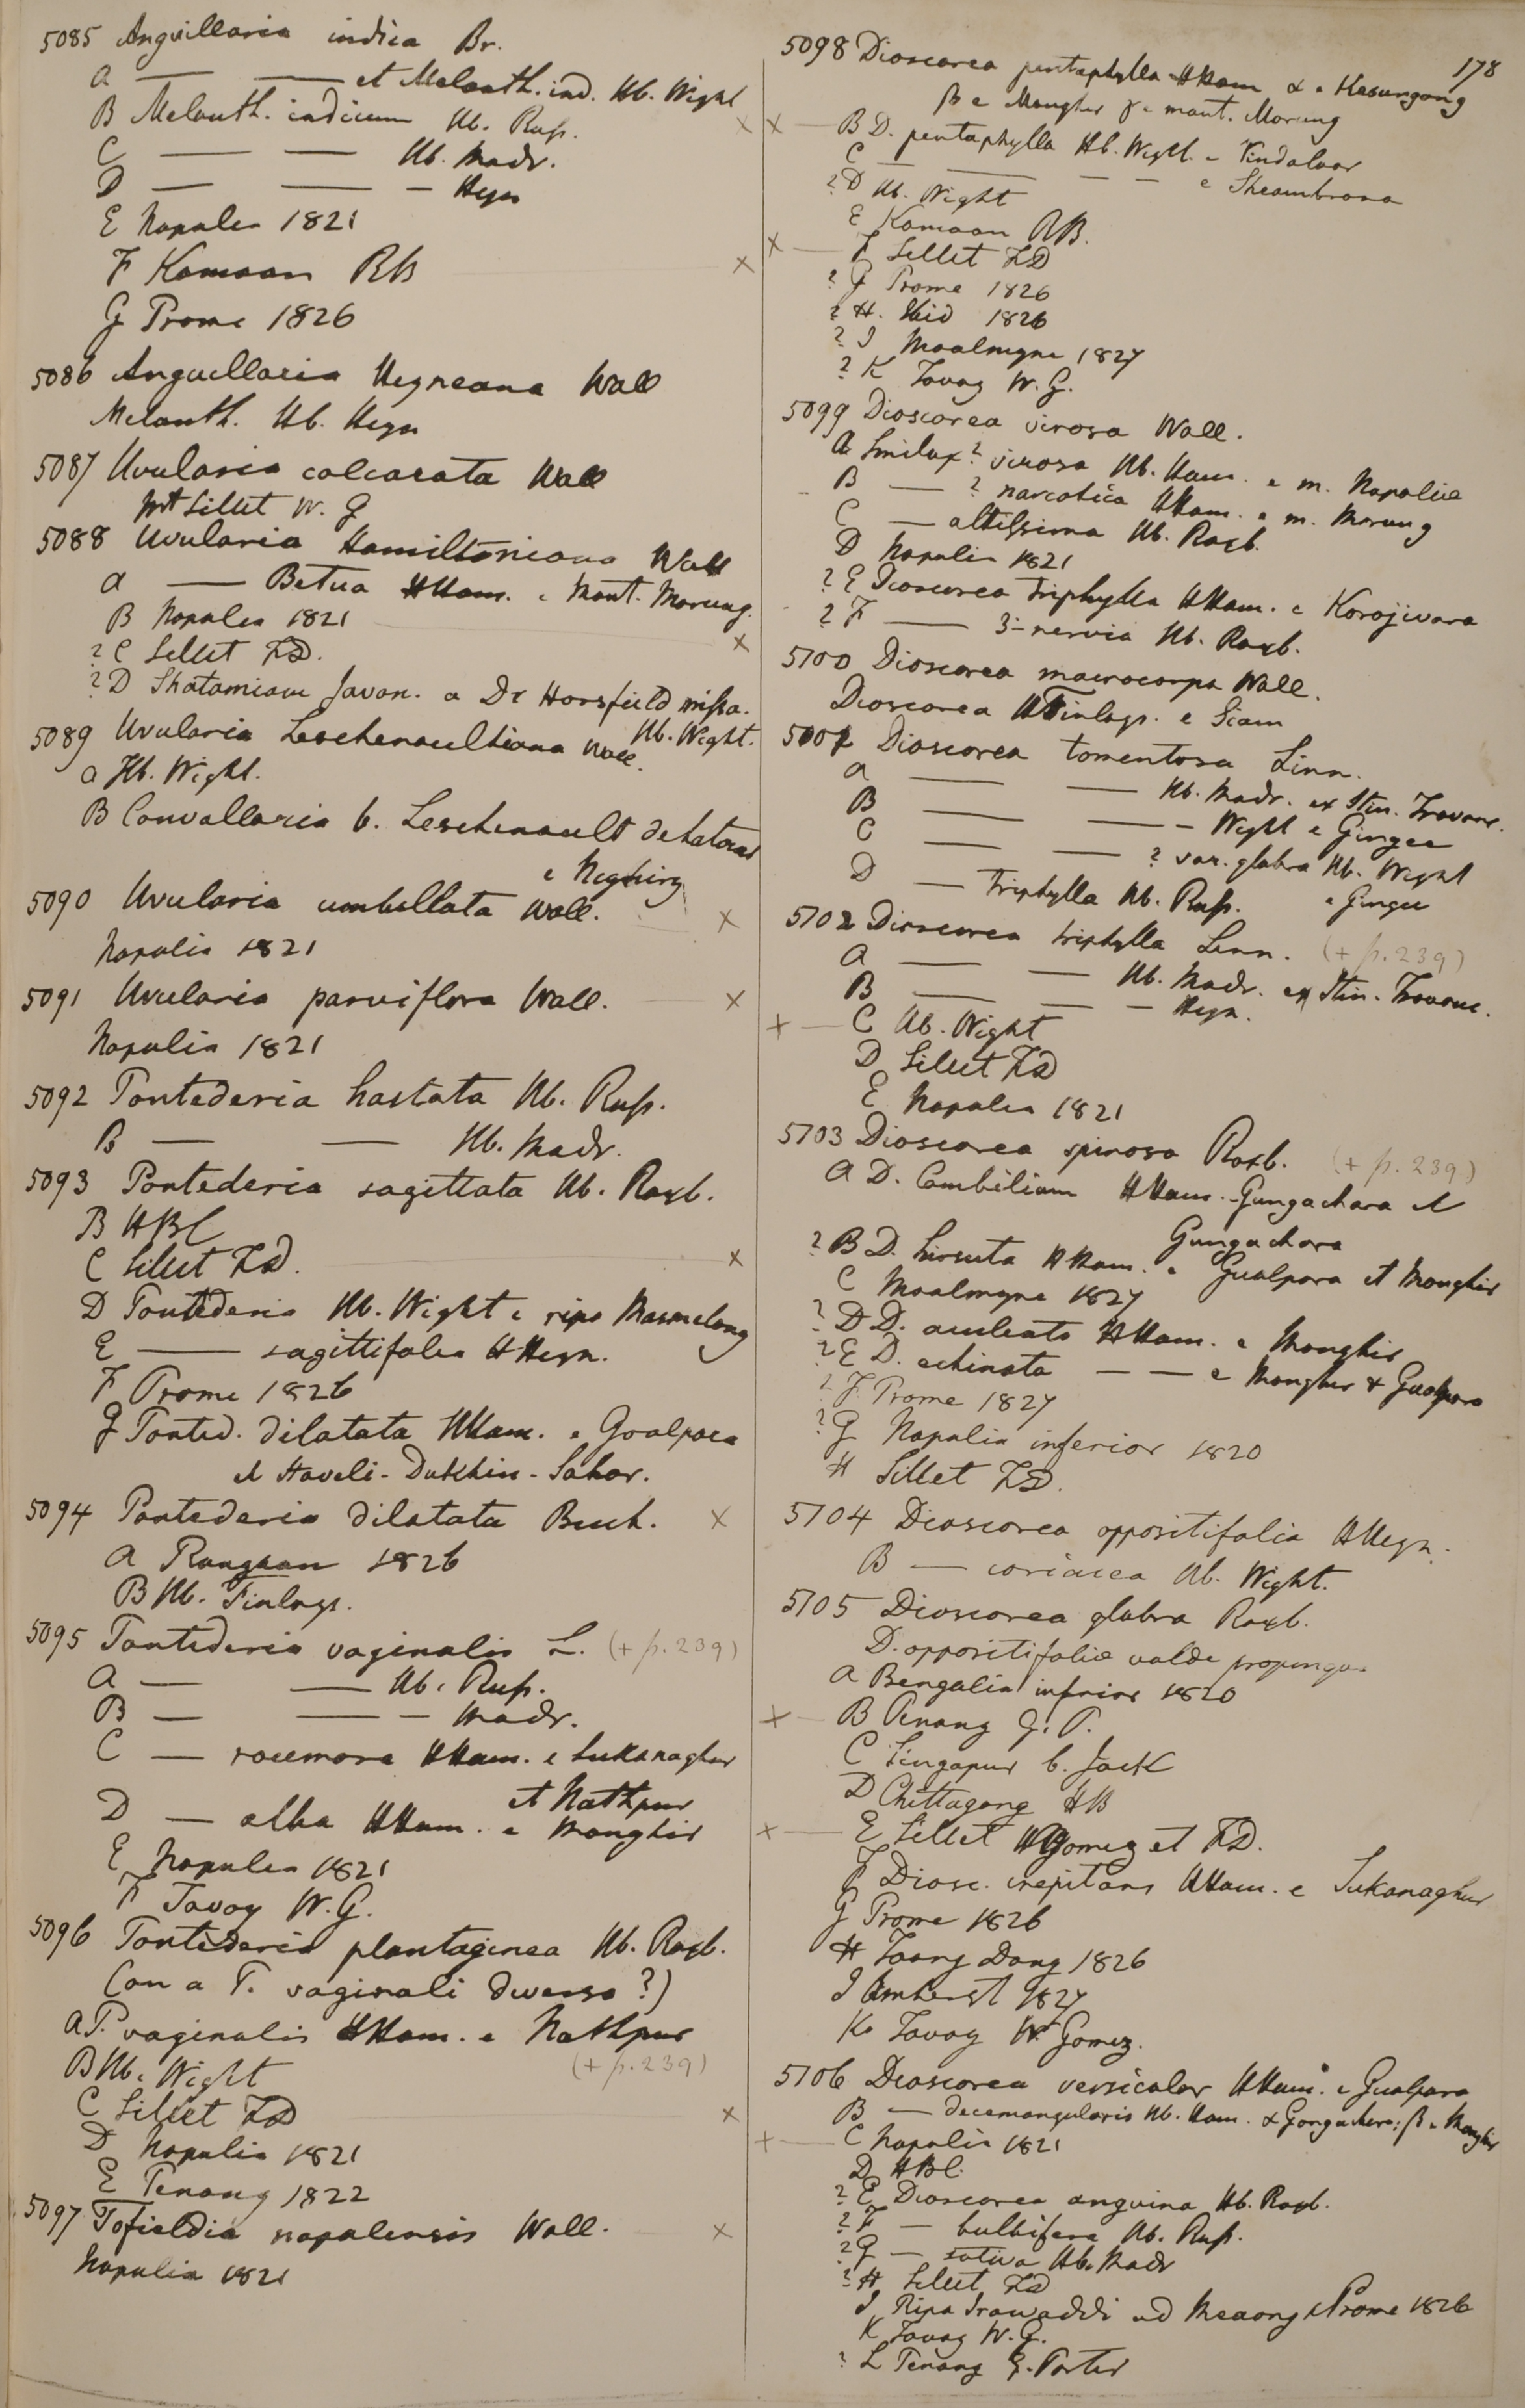 5085 Anguillaria indica Br.
A — — et Melanth. ind. Hb. Wight
B Melanth. indicum Hb. Rufs.
C — — Hb. Madr.
D — — — Heyn
E Napalia 1821
F Kamaon RB
G Prome 1826
5086 Anguillaria Heyneana Wall
Melanth. Hb. Heyn
5087 Uvularia calcarata Wall
Mt Sillet W. G
5088 Uvularia Hamiltoniana Wall
A — Betua HHam. e Mont. Morung.
B Napalia 1821
? C Sillet FD.
? D Javan. a Dr Horsfield missa.
5089 Uvularia Leschenaultiana Wall. Hb. Wight.
a Hb. Wight.
B Convallaria b. Leschenault
e
5090 Uvularia umbellata Wall.
Napalia 1821
5091 Uvularia parviflora Wall.
Napalia 1821
5092 Pontederia hastata Hb. Rufs.
B — — Hb. Madr.
5093 Pontederia sagittata Hb. Roxb.
B HBC
C Sillet FD.
D Pontederia Hb. Wight e ripa
E — sagittifolia HHeyn.
F Prome 1826
G Ponted. dilatata HHam. e Goalpara
et Haveli-Dukhin-Sahar.
5094 Pontederia dilatata Buch.
A Rangoon 1826
B Hb. Finlays.
5095 Pontederia vaginalis L. (+ p. 239)
A — — Hb. Rufs.
B — — — Madr.
C — racemosa HHam. e Sukanaghur
et Nathpur
D — alba HHam. e Monghir
E Napalia 1821
F Tavoy W. G.
5096 Pontederia plantaginea Hb. Roxb.
(an a P. vaginali diversa?)
A P. vaginalis HHam. e Nathpur
(+ p. 239)
B Hb. Wight
C Sillet FD
D Napalia 1821
E Penang 1822
5097 Tofieldia napalensis Wall.
Napalia 1821
178
5098 Dioscorea pentaphylla HHam α e Hasungong
β e Mongher γ e mont. Morung
B D. pentaphylla Hb. Wight. e Vindaloor
C — — — — e Sheambrona
? D Hb. Wight
E Kamaon RB.
F Sillet FD
? G Prome 1826
? H. 1826
? I Moalmyne 1827
? K Tavoy W. G.
5099 Dioscorea virosa Wall.
A Smilax? virosa Hb. Ham. e m. Napaliae
B — ? narcotica HHam. e m. Morung
C — altissima Hb. Roxb.
D Napalia 1821
? E Dioscorea triphylla HHam. e Korojivara
? F — 3-nervia Hb. Roxb.
5100 Dioscorea macrocarpa Wall.
Dioscorea HFinlays. e Siam
5101 Dioscorea tomentosa Linn.
A — — Hb. Madr. ex Itin. Travanc.
B — — — Wight e Gingee
C — — ? var. glabra Hb. Wight
e Gingee
D — triphylla Hb. Rufs.
5102 Dioscorea triphylla Linn. (+ p. 239)
A — — Hb. Madr. ex Itin. Travanc.
B — — — Heyn.
C Hb. Wight
D Sillet FD
E Napalia 1821
5103 Dioscorea spinosa Roxb. (+ p. 239)
A D. Combilium HHam. Gungachara et
Gungachora
? B D. hirsuta HHam. e Gualpara et Monghir
C Moalmyne 1827
? D D. aculeata HHam. e Monghir
? E D. echinata — — e Monghir & Gualpara
? F Prome 1827
? G Napalia inferior 1820
H Sillet FD.
5104 Dioscorea oppositifolia HHeyn.
B — coriacea Hb. Wight.
5105 Dioscorea glabra Roxb.
D. oppositifoliae valde propinqua
A Bengalia inferior 1820
B Penang G. P.
C Singapur b. Jack
D Chittagong HB
E Sillet HGomez et FD.
F Diosc. crepitans HHam. e Sukanaghur
G Prome 1826
H Toong Dong 1826
I Amherst 1827
K Tavoy W. Gomez.
5106 Dioscorea versicolor HHam. e Gualpara
B — decemangularis Hb. Ham. α Gongachora; β e Monghir
C Napalia 1821
D HBC.
? E Dioscorea anguina Hb. Roxb.
? F — bulbifera Hb. Rufs.
? G — sativa Hb. Madr
? H Sillet FD
I Ripa Irawaddi ad et Prome 1826
K Tavoy W. G.
? L Penang G. Porter